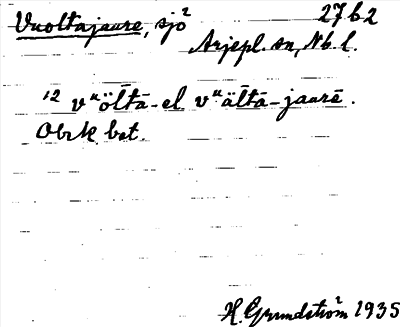 Vuoltajaure, sjö² 27 b 2
Arjepl. sn, Nb. l.
12 vᵘöltā- el. vᵘältā-jaurē.
Obek. bet.
H. Grundström 1935